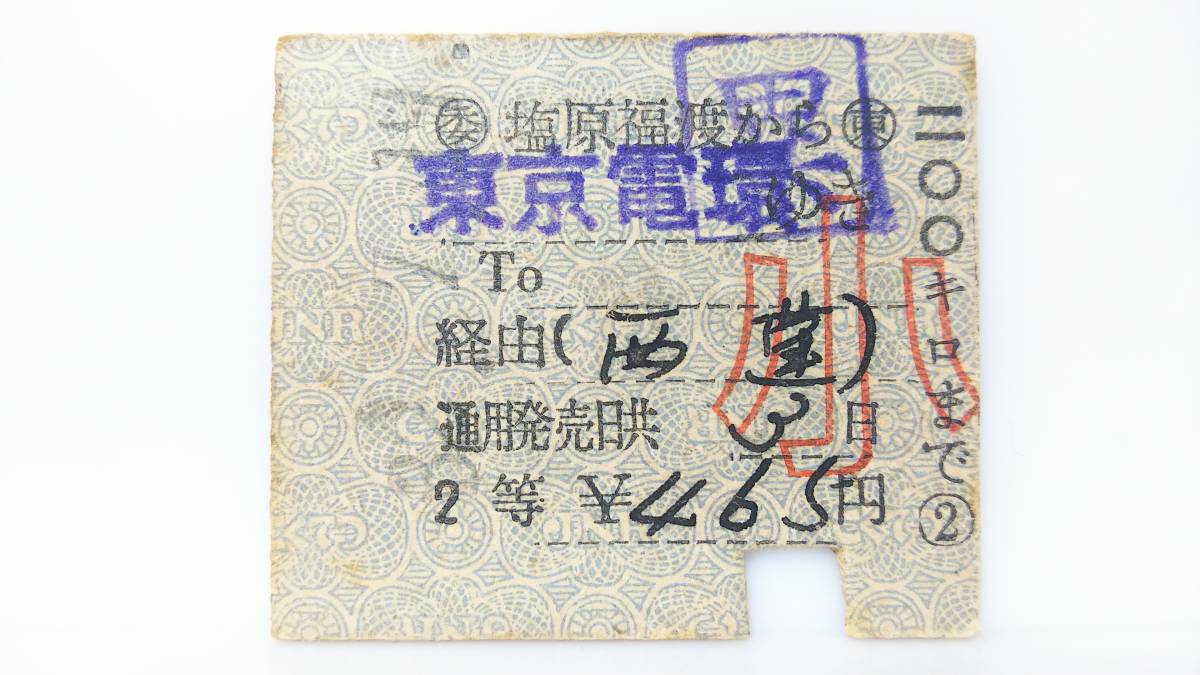 ㊙委 塩原福渡から ㊙東
東京電環ゆき
To
経由(西 )
通用発売日共 3日
2等 ¥465円
二〇〇キロまで②
小
JNR